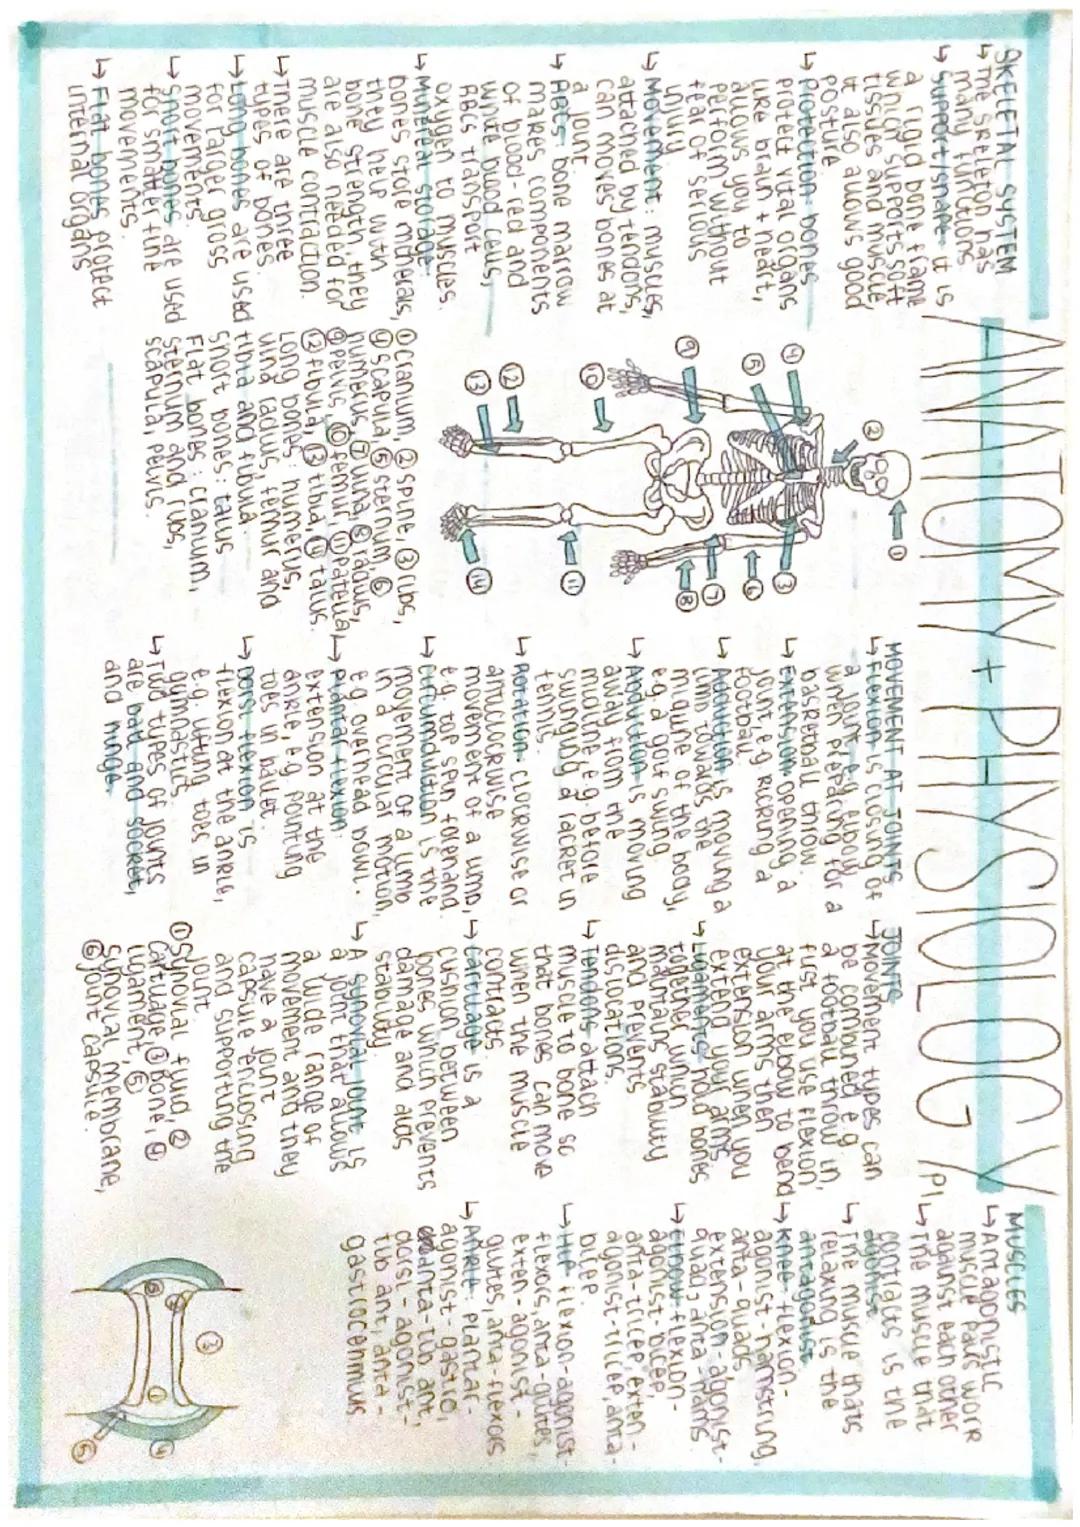 ANATOMY + PHYSIOLOGY P1
SKELETAL SYSTEM
↳ The skeleton has
many functions
↳ support/shape: it is
a rigid bone frame
which supports soft
tissues and muscle,
it also allows good
posture.
↳ Protection: bones
protect vital organs
like brain + heart,
allows you to
perform without
fear of serious
injury
↳ Movement: muscles,
attached by tendons,
can moves bones at
a joint
↳ RBCs: bone marrow
makes components
of blood - red and
white blood cells,
RBCs transport
oxygen to muscles.
↳ Mineral storage:
bones store minerals,
they help with
bone strength, they
are also needed for
muscle contraction.
↳ There are three
types of bones.
↳ Long bones are used
for larger gross
movements.
↳ Short bones are used
for smaller fine
movements.
↳ Flat bones protect
internal organs
① ② ③ ④ ⑤ ⑥ ⑦ ⑧ ⑨ ⑩ ⑪ ⑫ ⑬ ⑭
① cranium, ② spine, ③ ribs,
④ scapula, ⑤ sternum, ⑥
humerus, ⑦ ulna, ⑧ radius,
⑨ pelvis, ⑩ femur, ⑪ patella,
⑫ fibula, ⑬ tibia, ⑭ talus.
Long bones: humerus,
ulna radius, femur and
tibia and fibula
short bones: talus
Flat bones: cranium,
sternum and ribs,
scapula, pelvis.
MOVEMENT AT JOINTS
↳ Flexion- is closing of
a joint e.g. elbow
when preparing for a
basketball throw.
↳ Extension- opening a
joint e.g kicking a
football.
↳ Adduction is moving a
limb towards the
midline of the body,
e.g. a golf swing
↳ Abduction is moving
away from the
midline e.g. before
swinging a racket in
tennis.
↳ Rotation- clockwise or
anticlockwise
movement of a limb,
e.g. top spin forehand.
↳ Circumduction is the
movement of a limb
in a circular motion,
e.g. overhead bowl.
↳ Plantar flexion:
extension at the
ankle, e.g. pointing
toes in ballet.
↳ Dorsi-flexion is
flexion at the ankle,
e.g. lifting toes in
gymnastics
↳ Two types of joints
are ball and socket,
and hinge.
JOINTS
↳ Movement types can
be combined, e.g.
a football throw in,
first you use flexion,
at the elbow to bend
your arms then
extension when you
extend your arms
↳ Ligaments hold bones
together which
maintains stability
and prevents
dislocations.
↳ Tendons attach
muscle to bone so
that bones can move
when the muscle
contracts.
↳ Cartilage is a
cushion between
bones which prevents
damage and aids
stability
↳ A synovial joint is
a joint that allows
a wide range of
movement and they
have a joint
capsule enclosing
and supporting the
joint
① Synovial fluid, ②
Cartilage, ③ Bone, ④
Ligament, ⑤
Synovial membrane,
⑥ Joint capsule.
MUSCLES
↳ Antagonistic
muscle pairs work
against each other
↳ The muscle that
contracts is the
agonist
↳ The muscle thats
relaxing is the
antagonist
↳ Knee- flexion -
agonist - hamstring,
anta - quads
extension - agonist -
quad, anta - hams.
↳ Elbow- flexion -
agonist - bicep,
anta - tricep, exten -
agonist - tricep, anta -
bicep.
↳ Hip- flexion - agonist -
flexors, anta - glutes,
exten - agonist -
glutes, anta - flexors.
↳ Ankle- plantar -
agonist - gastro,
anta - tib ant,
dorsi - agonist -
tib ant, anta -
gastrocenmus.
③ ① ④ ⑤